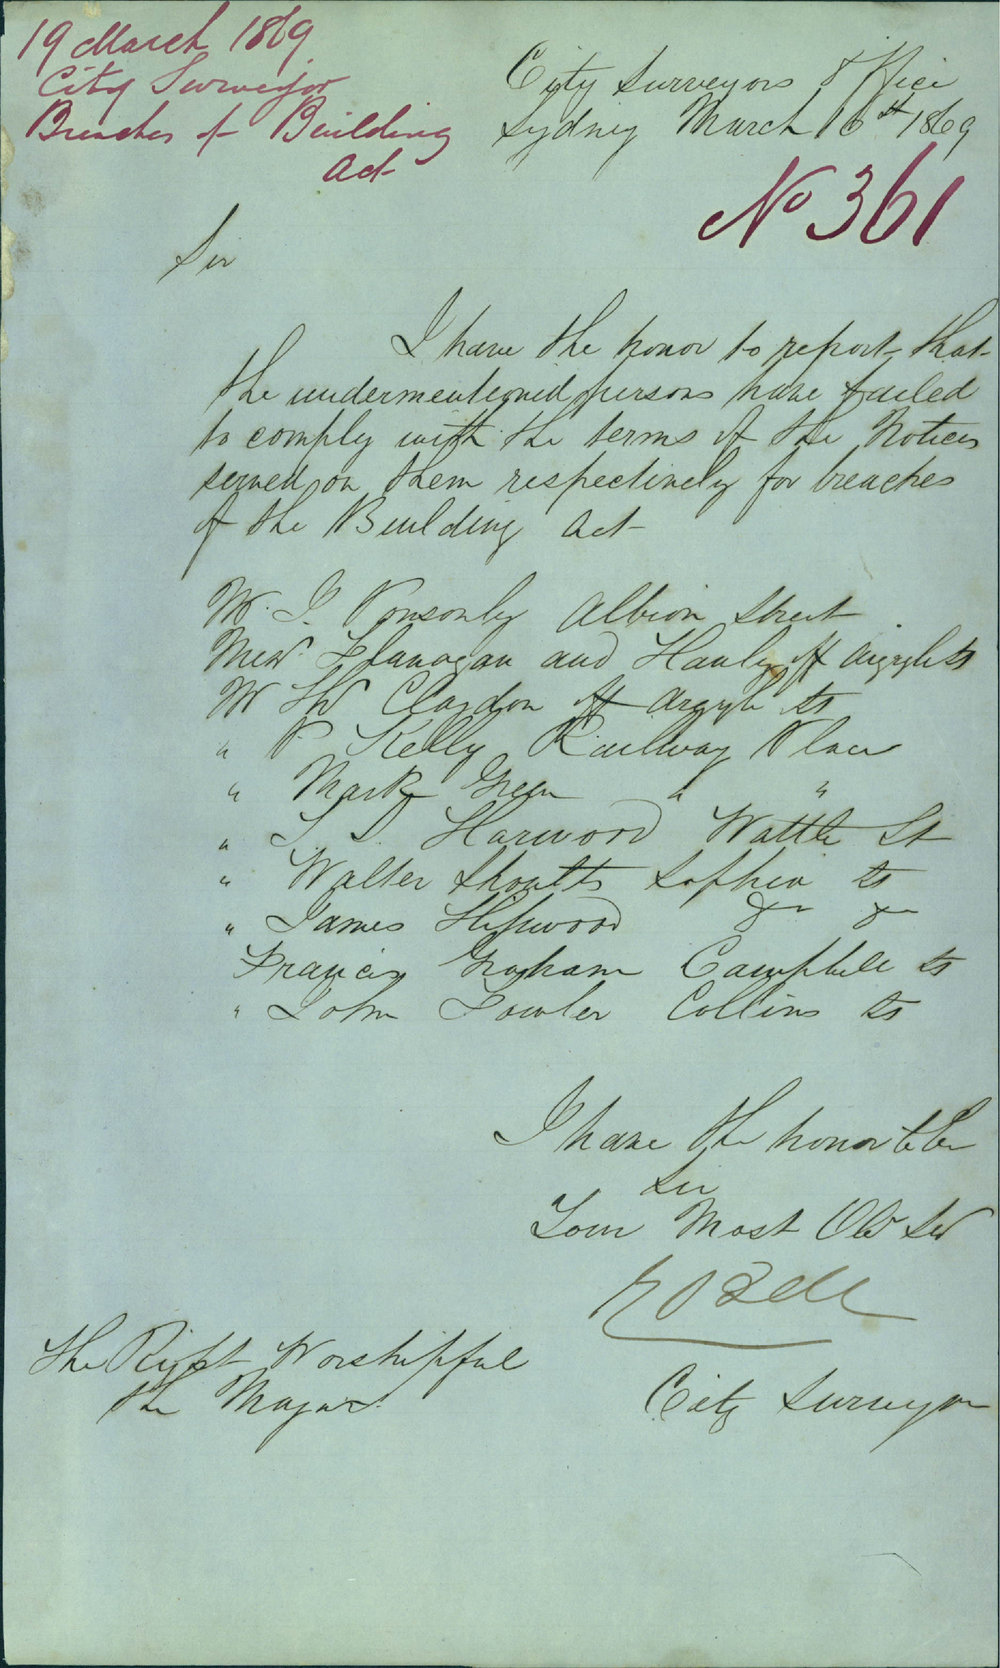 19 March 1869
City Surveyor
Breaches of Building
Act
City Surveyors Office
Sydney March 16th 1869
No 361
Sir
I have the honor to report that
the undermentioned persons have failed
to comply with the terms of the Notices
served on them respectively for breaches
of the Building Act
Mr. J. Ponsonby Albion Street
Messrs Flanagan and Hanly off Argyle St
Mr Thos Clagdon off Argyle St
" P. Kelly Railway Place
" Mark Green " "
" Harwood Wattle St
" Walter Sophia St
" James Hipwood Do Do
Francis Graham Campbell St
" John Fowler Collins St
I have the honor to be
Sir
Your Most Obt Sert
Bell
City Surveyor
The Right Worshipful
the Mayor